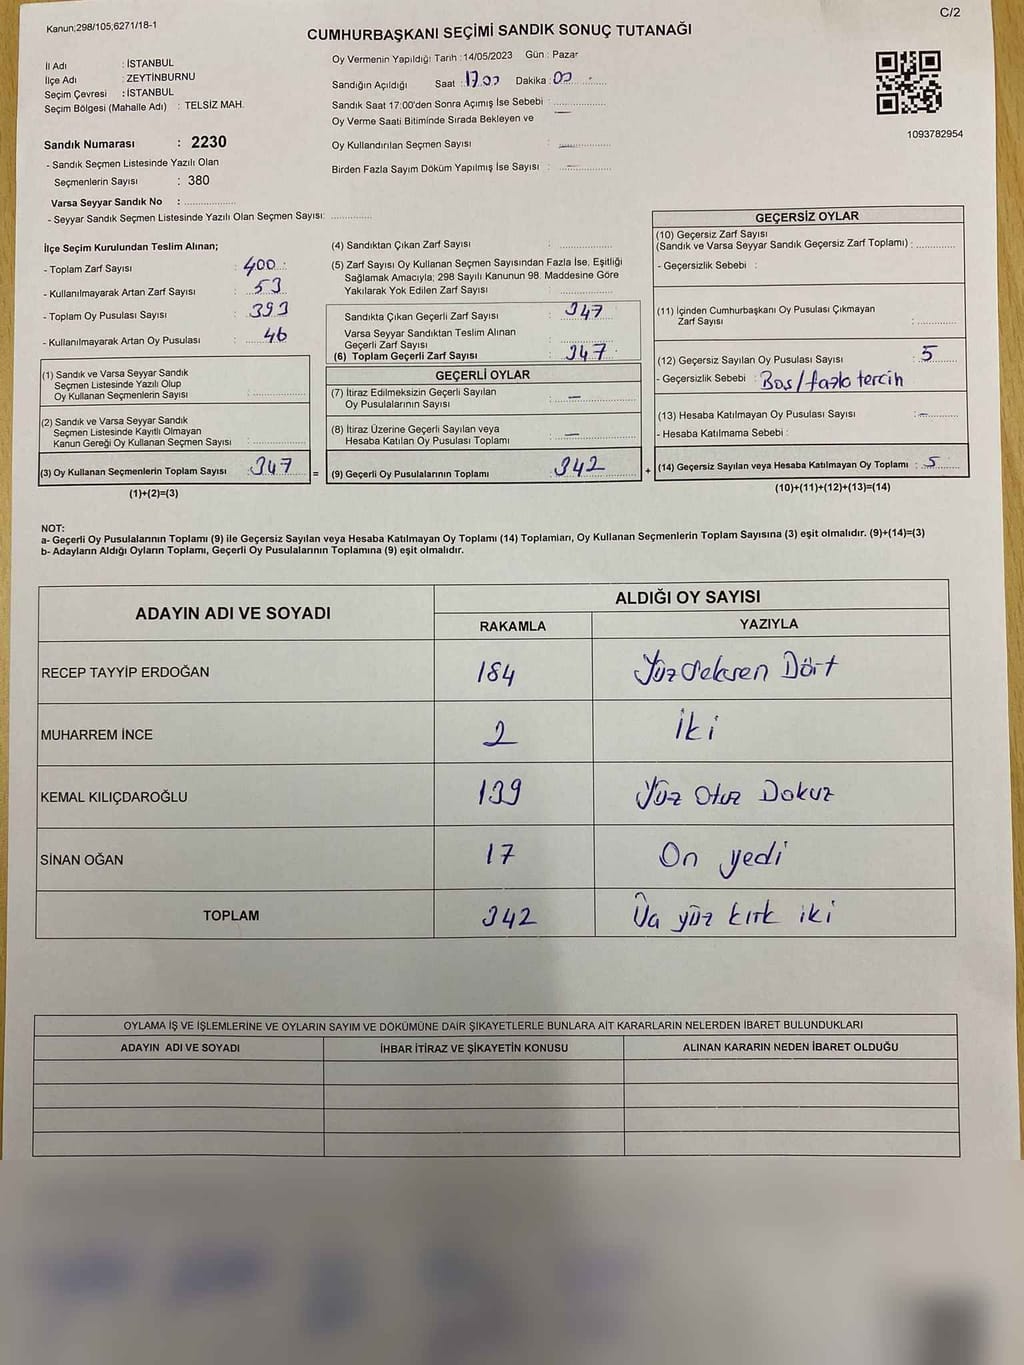 Kanun;298/105,6271/18-1
C/2
CUMHURBAŞKANI SEÇİMİ SANDIK SONUÇ TUTANAĞI
İl Adı : İSTANBUL
İlçe Adı : ZEYTİNBURNU
Seçim Çevresi : İSTANBUL
Seçim Bölgesi (Mahalle Adı) : TELSİZ MAH.
Oy Vermenin Yapıldığı Tarih :14/05/2023 Gün : Pazar
Sandığın Açıldığı Saat :17.00 Dakika :00
Sandık Saat 17:00'den Sonra Açımış İse Sebebi :
Oy Verme Saati Bitiminde Sırada Bekleyen ve
Oy Kullandırılan Seçmen Sayısı : —
Birden Fazla Sayım Döküm Yapılmış İse Sayısı : —
1093782954
Sandık Numarası : 2230
- Sandık Seçmen Listesinde Yazılı Olan
Seçmenlerin Sayısı : 380
Varsa Seyyar Sandık No :
- Seyyar Sandık Seçmen Listesinde Yazılı Olan Seçmen Sayısı:
İlçe Seçim Kurulundan Teslim Alınan;
- Toplam Zarf Sayısı : 400
- Kullanılmayarak Artan Zarf Sayısı : 53
- Toplam Oy Pusulası Sayısı : 393
- Kullanılmayarak Artan Oy Pusulası : 46
(1) Sandık ve Varsa Seyyar Sandık
Seçmen Listesinde Yazılı Olup
Oy Kullanan Seçmenlerin Sayısı :
(2) Sandık ve Varsa Seyyar Sandık
Seçmen Listesinde Kayıtlı Olmayan
Kanun Gereği Oy Kullanan Seçmen Sayısı :
(3) Oy Kullanan Seçmenlerin Toplam Sayısı : 347 =
(1)+(2)=(3)
(4) Sandıktan Çıkan Zarf Sayısı :
(5) Zarf Sayısı Oy Kullanan Seçmen Sayısından Fazla İse, Eşitliği
Sağlamak Amacıyla; 298 Sayılı Kanunun 98. Maddesine Göre
Yakılarak Yok Edilen Zarf Sayısı :
Sandıkta Çıkan Geçerli Zarf Sayısı : 347
Varsa Seyyar Sandıktan Teslim Alınan
Geçerli Zarf Sayısı :
(6) Toplam Geçerli Zarf Sayısı : 347
GEÇERLİ OYLAR
(7) İtiraz Edilmeksizin Geçerli Sayılan
Oy Pusulalarının Sayısı : —
(8) İtiraz Üzerine Geçerli Sayılan veya
Hesaba Katılan Oy Pusulası Toplamı : —
(9) Geçerli Oy Pusulalarının Toplamı : 342 +
GEÇERSİZ OYLAR
(10) Geçersiz Zarf Sayısı
(Sandık ve Varsa Seyyar Sandık Geçersiz Zarf Toplamı) :
- Geçersizlik Sebebi :
(11) İçinden Cumhurbaşkanı Oy Pusulası Çıkmayan
Zarf Sayısı :
(12) Geçersiz Sayılan Oy Pusulası Sayısı : 5
- Geçersizlik Sebebi : Bos/fazla tercih
(13) Hesaba Katılmayan Oy Pusulası Sayısı : —
- Hesaba Katılmama Sebebi :
(14) Geçersiz Sayılan veya Hesaba Katılmayan Oy Toplamı : 5
(10)+(11)+(12)+(13)=(14)
NOT:
a- Geçerli Oy Pusulalarının Toplamı (9) ile Geçersiz Sayılan veya Hesaba Katılmayan Oy Toplamı (14) Toplamları, Oy Kullanan Seçmenlerin Toplam Sayısına (3) eşit olmalıdır. (9)+(14)=(3)
b- Adayların Aldığı Oyların Toplamı, Geçerli Oy Pusulalarının Toplamına (9) eşit olmalıdır.
ADAYIN ADI VE SOYADI
ALDIĞI OY SAYISI
RAKAMLA YAZIYLA
RECEP TAYYİP ERDOĞAN 184 Yüzseksen Dört
MUHARREM İNCE 2 İki
KEMAL KILIÇDAROĞLU 139 Yüz Otuz Dokuz
SİNAN OĞAN 17 On yedi
TOPLAM 342 yüz kırk iki
OYLAMA İŞ VE İŞLEMLERİNE VE OYLARIN SAYIM VE DÖKÜMÜNE DAİR ŞİKAYETLERLE BUNLARA AİT KARARLARIN NELERDEN İBARET BULUNDUKLARI
ADAYIN ADI VE SOYADI İHBAR İTİRAZ VE ŞİKAYETİN KONUSU ALINAN KARARIN NEDEN İBARET OLDUĞU